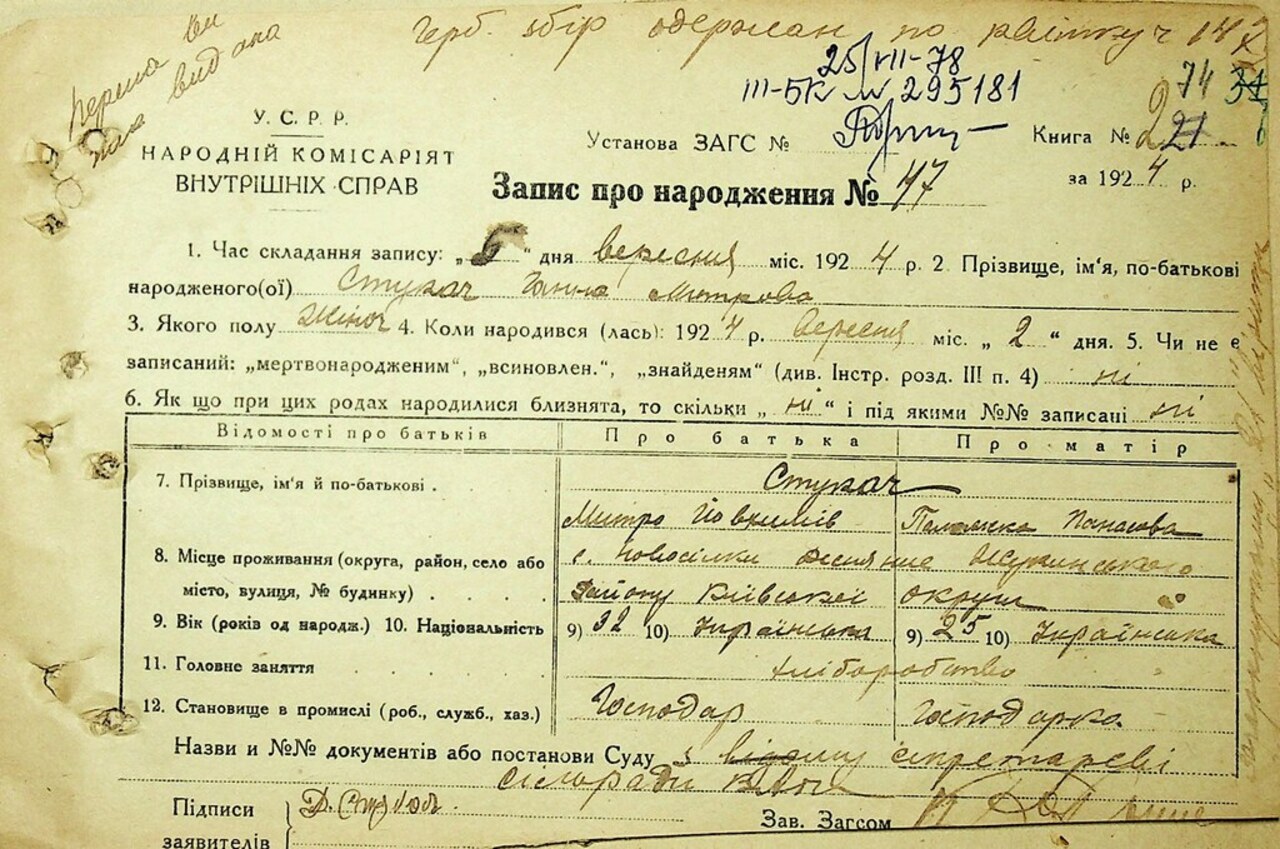 Герб. збір одержан по квітку ч 142
перша ви
видана
25/VII-78
III-БК № 295181
74 34
У.С.Р.Р.
НАРОДНІЙ КОМІСАРІЯТ
ВНУТРІШНІХ СПРАВ
Установа ЗАГС №
Книга № 2 21
за 1924 р.
Запис про народження № 47
1. Час складання запису: „5“ дня вересня міс. 1924 р. 2. Прізвище, ім'я, по-батькові
народженого(ої) Стукач Ганна Митрова
3. Якого полу жіноч 4. Коли народився (лась): 1924 р. вересня міс. „2“ дня. 5. Чи не є
записаний: „мертвонародженим“, „всиновлен.“, „знайденям“ (див. Інстр. розд. III п. 4) ні
6. Як що при цих родах народилися близнята, то скільки „ні“ і під якими №№ записані ні
Відомості про батьків Про батька Про матір
7. Прізвище, ім'я й по-батькові . Стукач
Митро Йовкимів Пелажка Панасова
8. Місце проживання (округа, район, село або с. Новосілки
місто, вулиця, № будинку) . . . . району Київської округи
9. Вік (років од народж.) 10. Національність 9) 32 10) Українська 9) 25 10) Українська
11. Головне заняття . . . . хліборобство
12. Становище в промислі (роб., служб., хаз.) Господар Господарка
Назви и №№ документів або постанови Суду з відому секретареві
сільради
Підписи Д. Стукач.
заявителів
Зав. Загсом